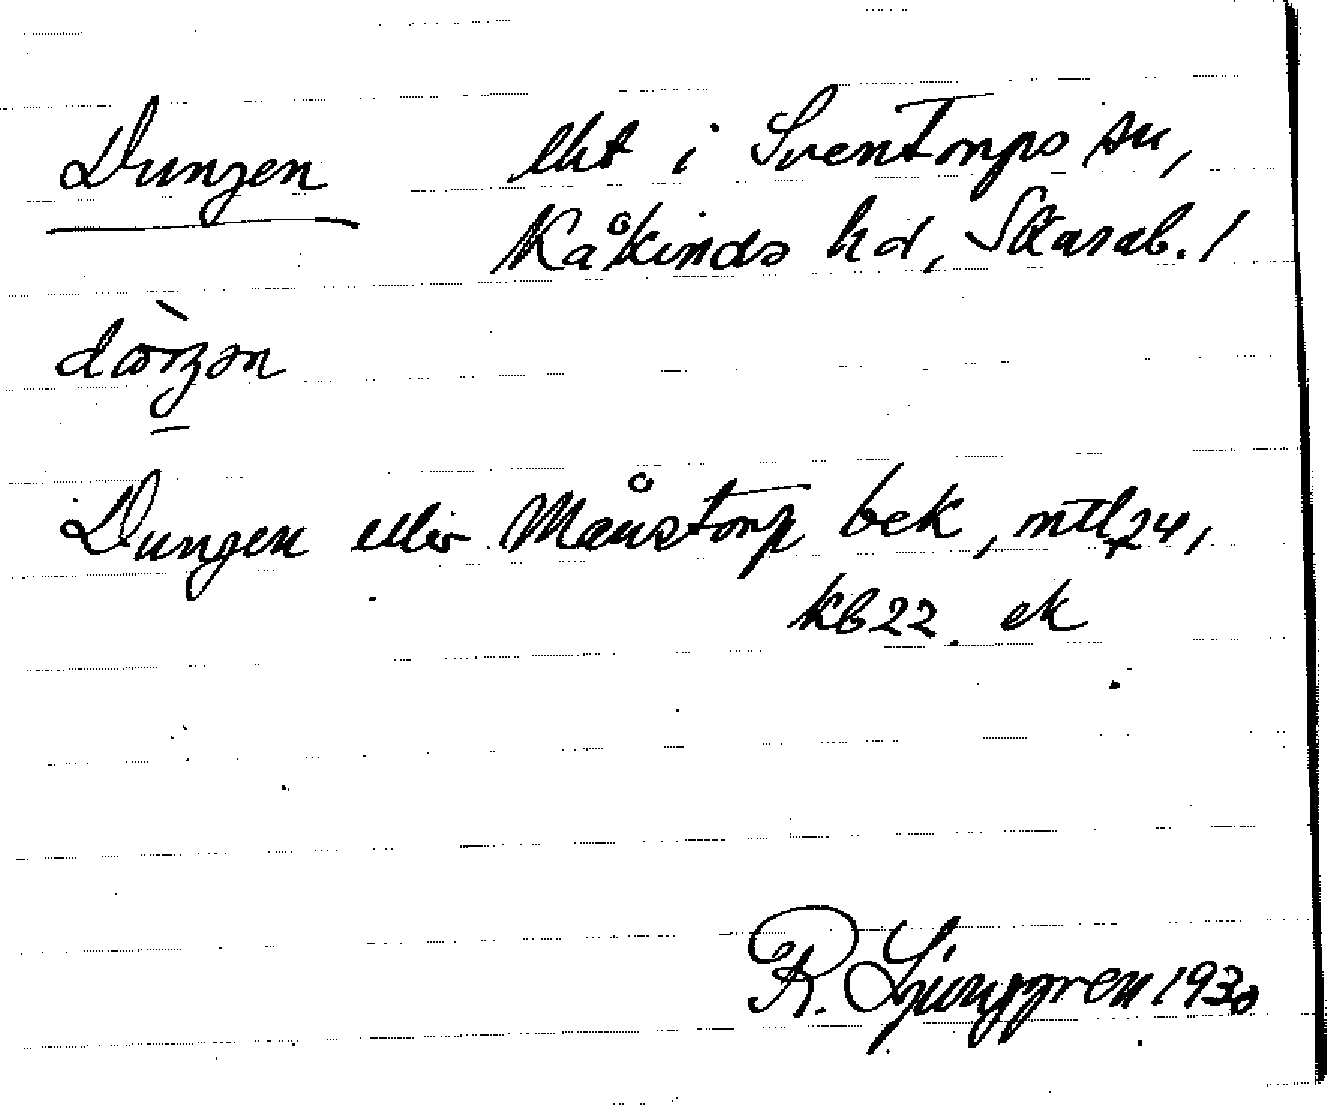 Dungen lht i Sventorps sn,
Kåkinds hd, Skarab. l
Dungen eller Månstorp bek, mtl 24,
kb 22. ek
R. Ljunggren 1930